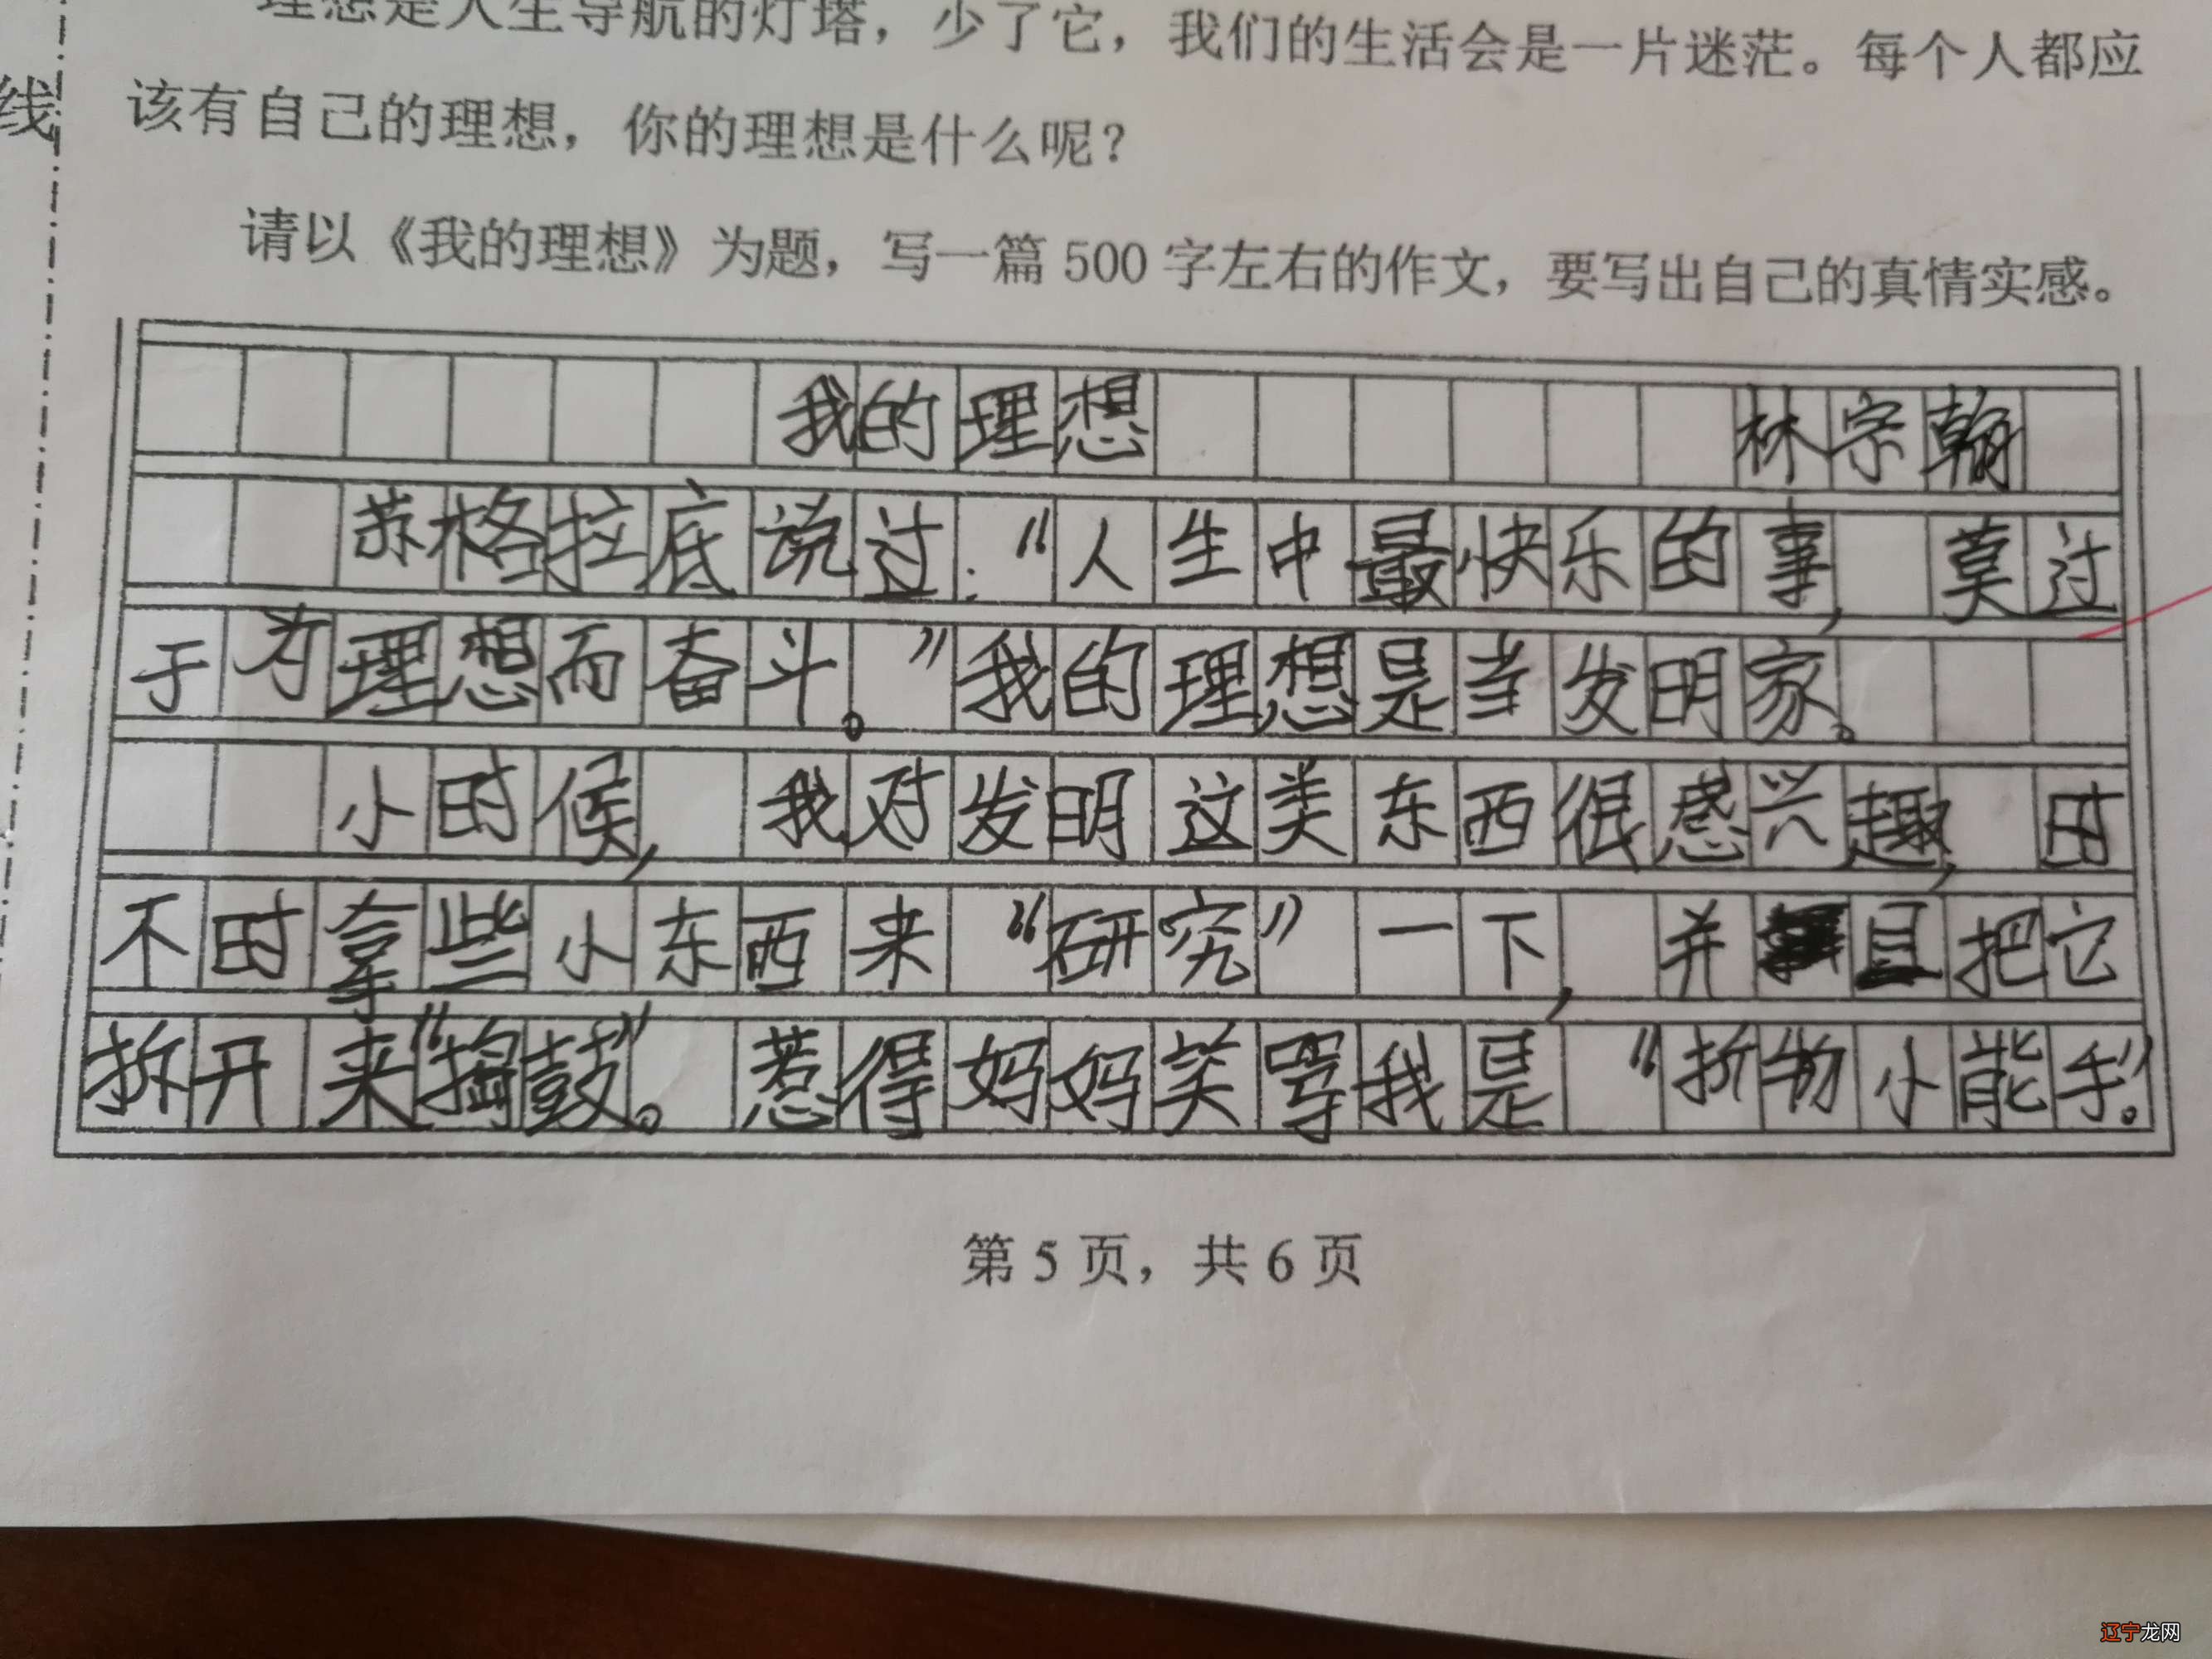 理想是人生导航的灯塔，少了它，我们的生活会是一片迷茫。每个人都应
线
该有自己的理想，你的理想是什么呢？
请以《我的理想》为题，写一篇500字左右的作文，要写出自己的真情实感。
我的理想 林宗翰
苏格拉底说过：“人生中最快乐的事，莫过
于为理想而奋斗。”我的理想是当发明家。
小时候，我对发明这类东西很感兴趣，时
不时拿些小东西来“研究”一下，并且把它
拆开来“捣鼓”。惹得妈妈笑骂我是“折物小能手”。
第5页，共6页
辽宁龙网